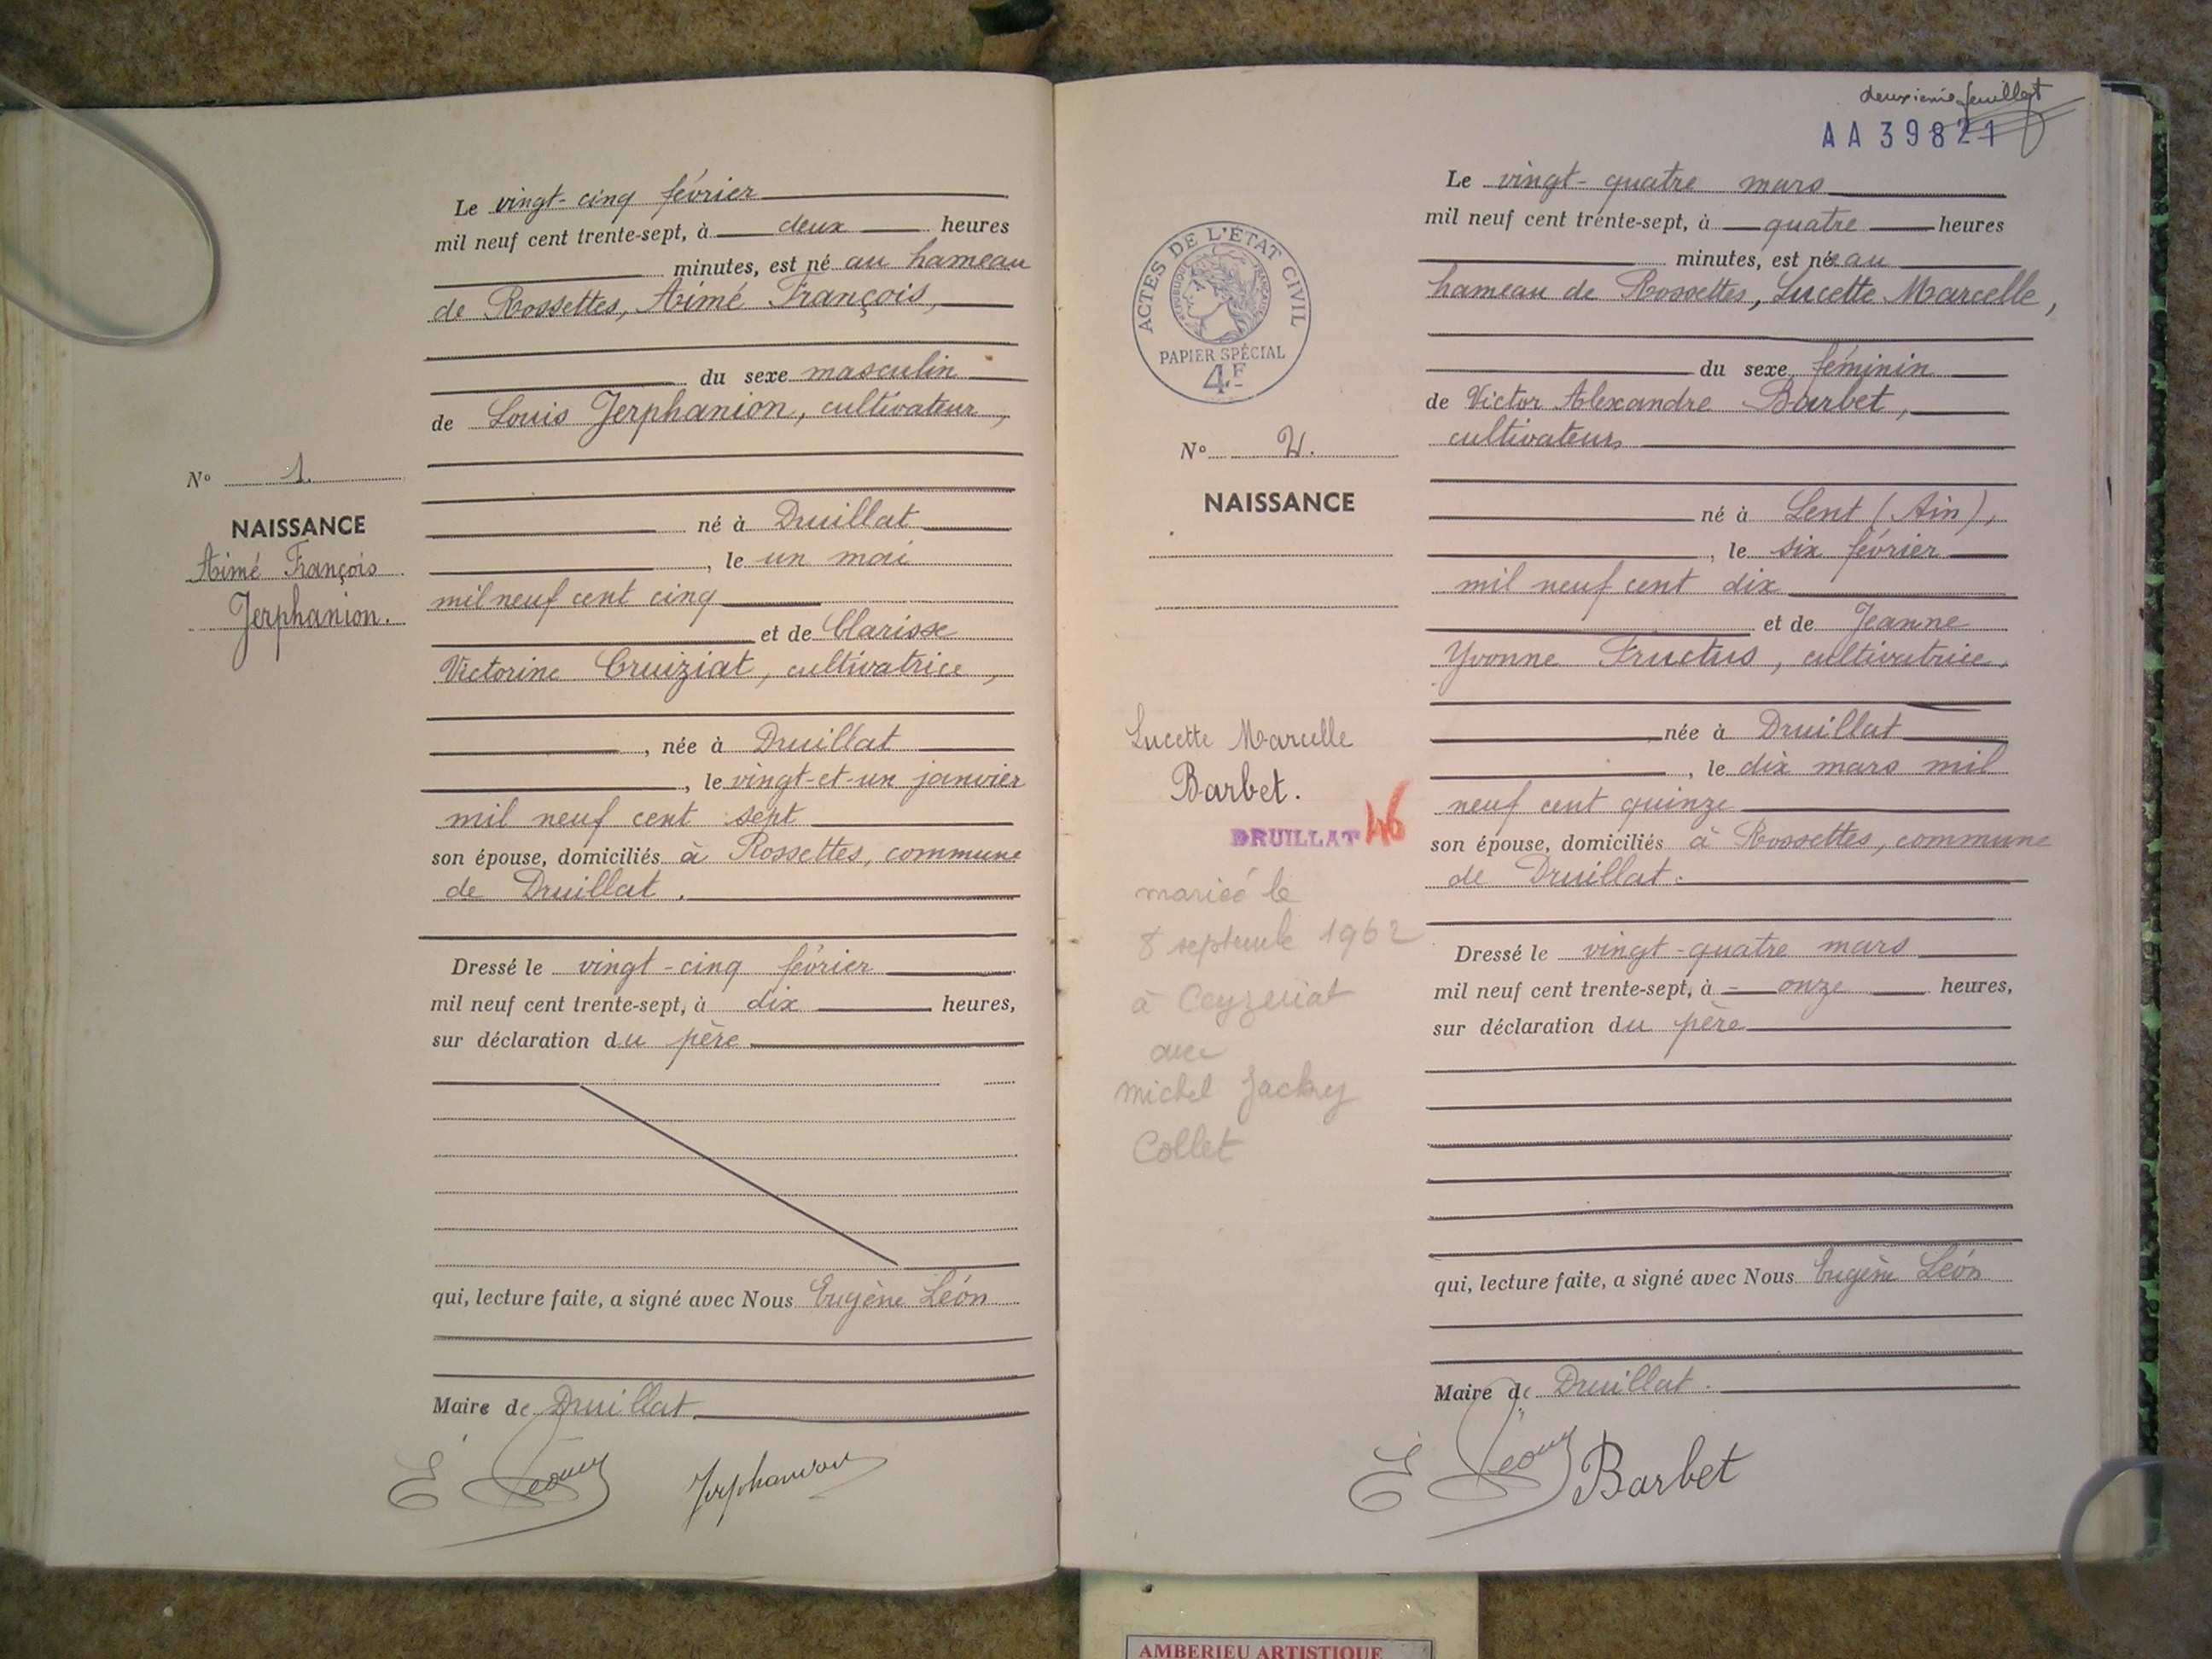 Le vingt-cinq février
mil neuf cent trente-sept, à deux heures
minutes, est né au hameau
de Rossettes, Aimé François,
du sexe masculin
de Louis Jerphanion, cultivateur,
né à Druillat
, le un mai
mil neuf cent cinq
et de Clarisse
Victorine Cruiziat, cultivatrice,
, née à Druillat
, le vingt-et-un janvier
mil neuf cent sept
son épouse, domiciliés à Rossettes, commune
de Druillat.
Dressé le vingt-cinq février
mil neuf cent trente-sept, à dix heures,
sur déclaration du père
qui, lecture faite, a signé avec Nous Eugène Léon
Maire de Druillat
E Léon Jerphanion
No 1.
NAISSANCE
Aimé François
Jerphanion.
deuxième feuillet
AA 39821
Le vingt-quatre mars
mil neuf cent trente-sept, à quatre heures
minutes, est née au
hameau de Rossettes, Lucette Marcelle,
du sexe féminin
de Victor Alexandre Barbet,
cultivateur,
né à Lent (Ain),
, le six février
mil neuf cent dix
et de Jeanne
Yvonne Fructus, cultivatrice,
née à Druillat
, le dix mars mil
neuf cent quinze
son épouse, domiciliés à Rossettes, commune
de Druillat.
Dressé le vingt-quatre mars
mil neuf cent trente-sept, à onze heures,
sur déclaration du père
qui, lecture faite, a signé avec Nous Eugène Léon
Maire de Druillat.
E Léon Barbet
ACTES DE L'ÉTAT CIVIL
RÉPUBLIQUE FRANÇAISE
PAPIER SPÉCIAL
4F
No 2.
NAISSANCE
Lucette Marcelle
Barbet.
DRUILLAT 46
mariée le
8 septembre 1962
à Ceyzeriat
avec
Michel Jacky
Collet
AMBERIEU ARTISTIQUE